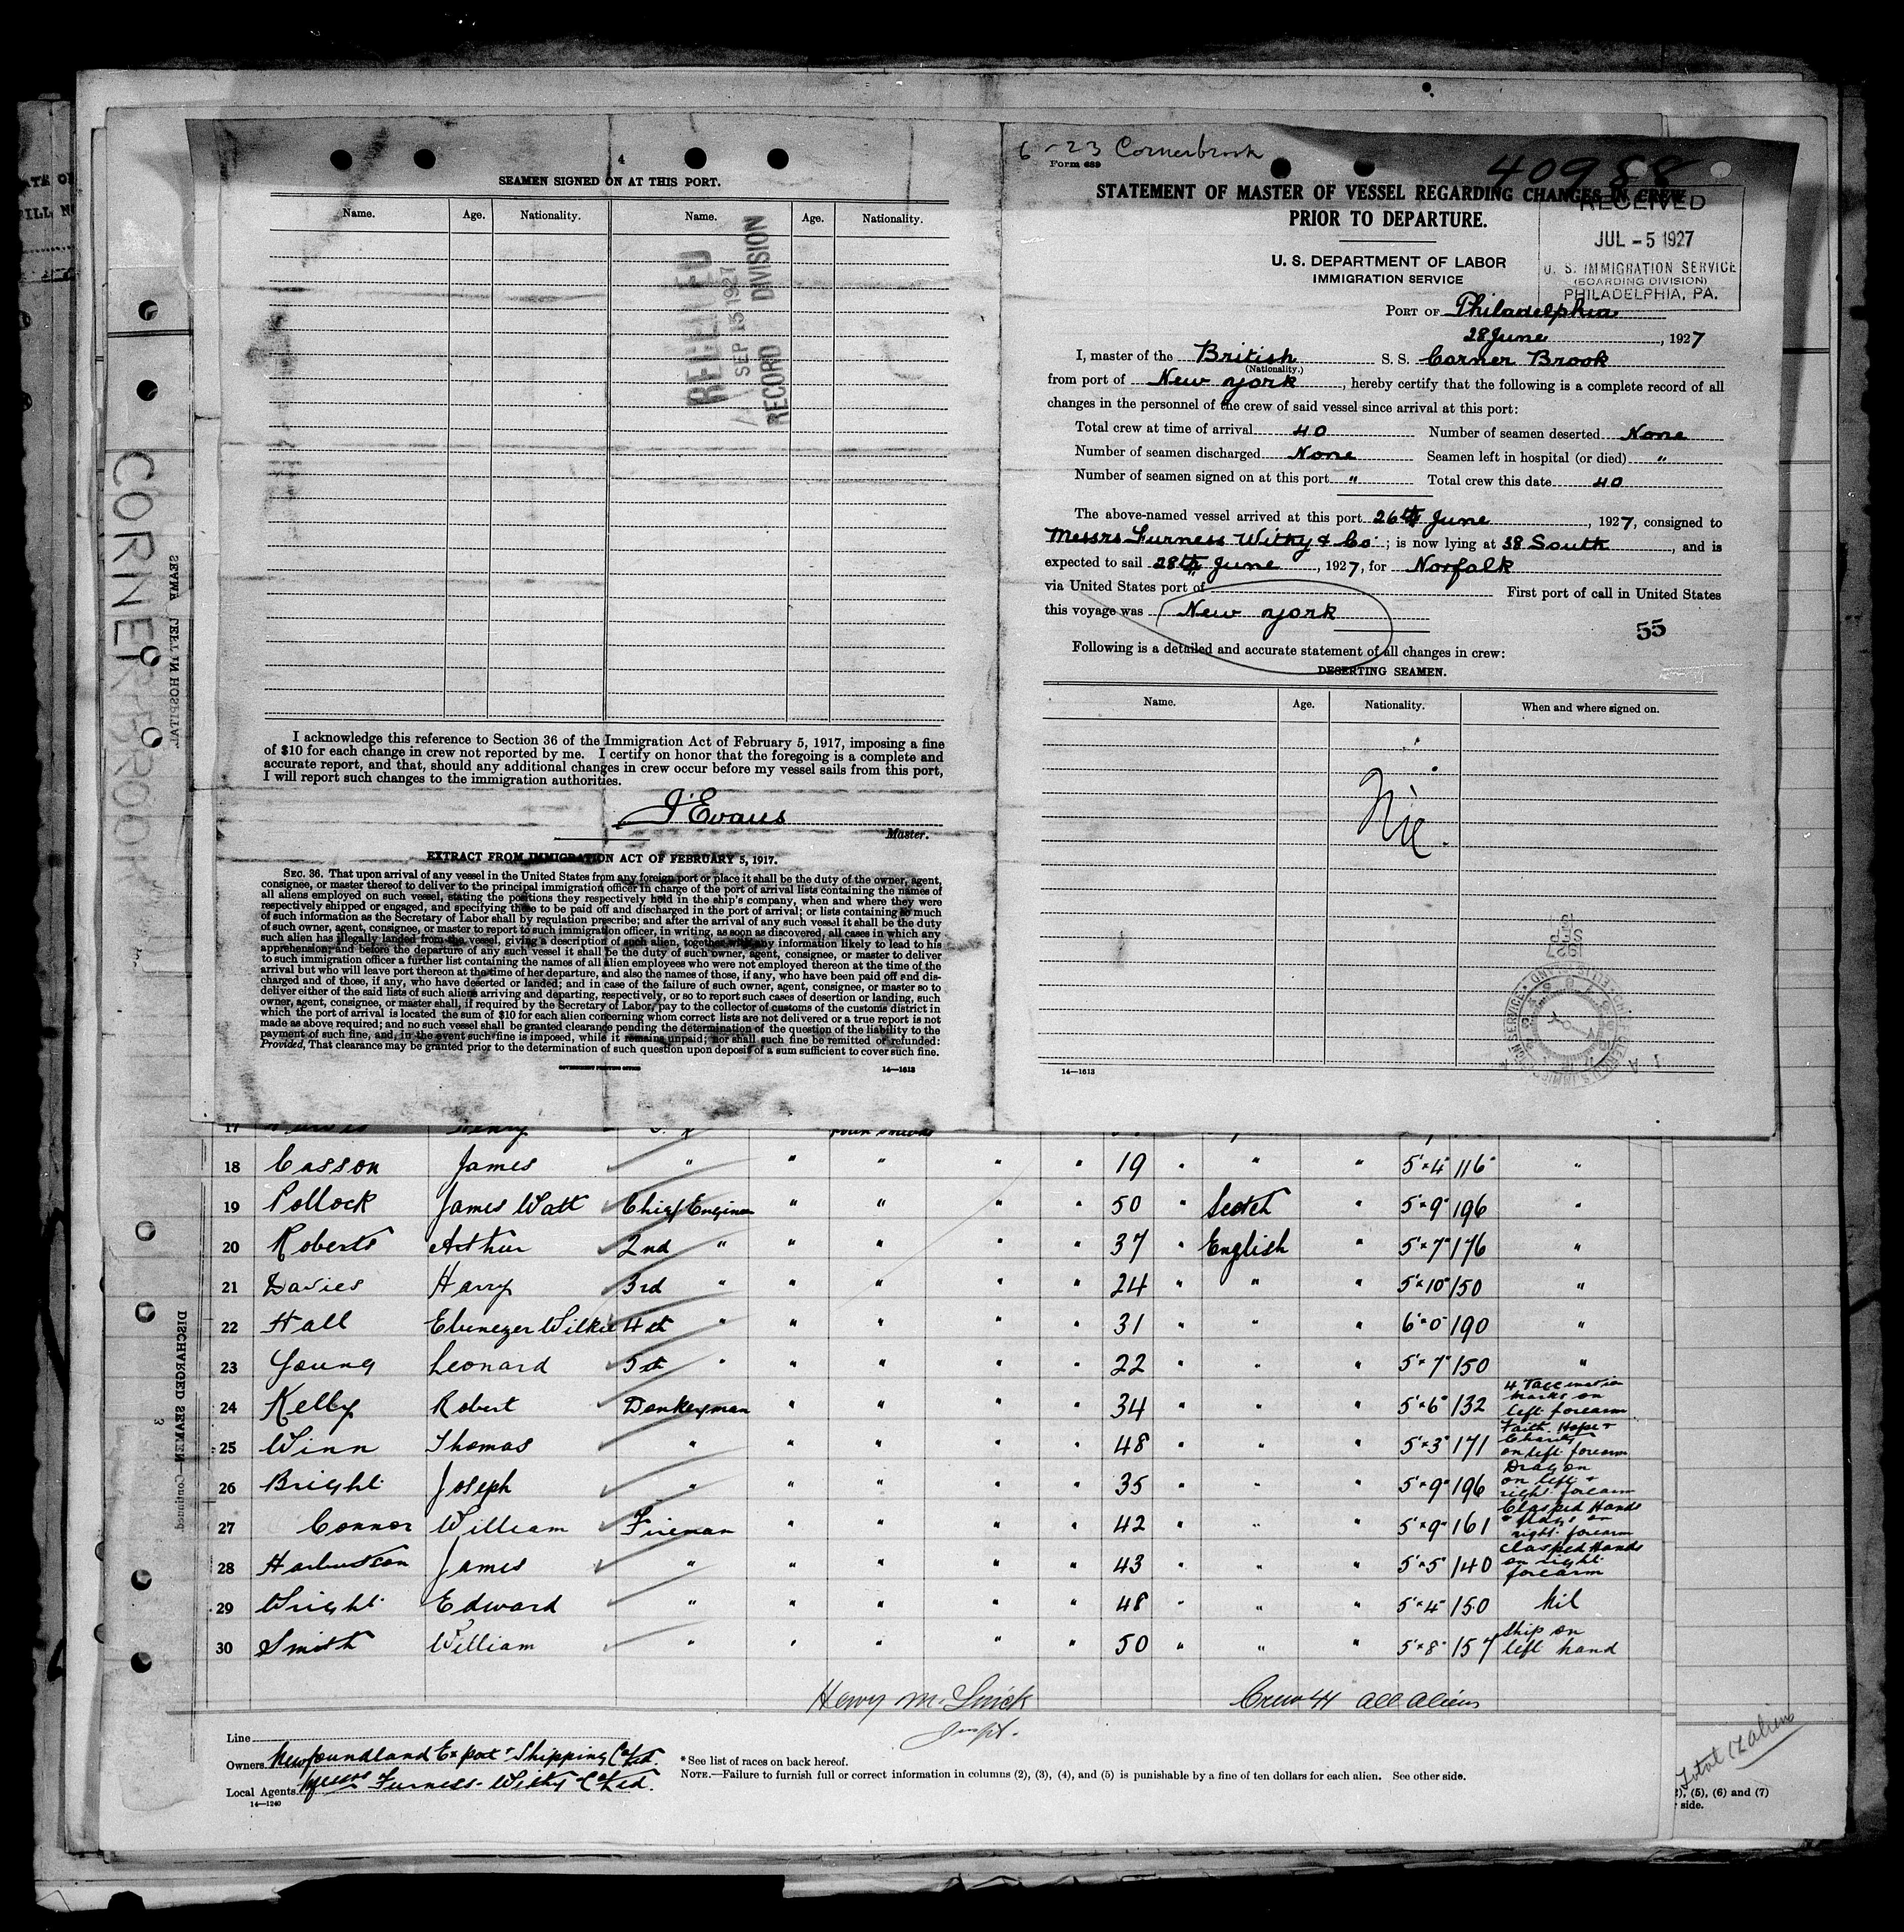 4
SEAMEN SIGNED ON AT THIS PORT.
Name. Age. Nationality. Name. Age. Nationality.
RECEIVED
SEP 15 1927
RECORD DIVISION
I acknowledge this reference to Section 36 of the Immigration Act of February 5, 1917, imposing a fine
of $10 for each change in crew not reported by me. I certify on honor that the foregoing is a complete and
accurate report, and that, should any additional changes in crew occur before my vessel sails from this port,
I will report such changes to the immigration authorities.
J Evans
Master.
EXTRACT FROM IMMIGRATION ACT OF FEBRUARY 5, 1917.
SEC. 36. That upon arrival of any vessel in the United States from any foreign port or place it shall be the duty of the owner, agent,
consignee, or master thereof to deliver to the principal immigration officer in charge of the port of arrival lists containing the names of
all aliens employed on such vessel, stating the positions they respectively hold in the ship's company, when and where they were
respectively shipped or engaged, and specifying those to be paid off and discharged in the port of arrival; or lists containing so much
of such information as the Secretary of Labor shall by regulation prescribe; and after the arrival of any such vessel it shall be the duty
of such owner, agent, consignee, or master to report to such immigration officer, in writing, as soon as discovered, all cases in which any
such alien has illegally landed from the vessel, giving a description of such alien, together with any information likely to lead to his
apprehension; and before the departure of any such vessel it shall be the duty of such owner, agent, consignee, or master to deliver
to such immigration officer a further list containing the names of all alien employees who were not employed thereon at the time of the
arrival but who will leave port thereon at the time of her departure, and also the names of those, if any, who have been paid off and dis-
charged and of those, if any, who have deserted or landed; and in case of the failure of such owner, agent, consignee, or master so to
deliver either of the said lists of such aliens arriving and departing, respectively, or so to report such cases of desertion or landing, such
owner, agent, consignee, or master shall, if required by the Secretary of Labor, pay to the collector of customs of the customs district in
which the port of arrival is located the sum of $10 for each alien concerning whom correct lists are not delivered or a true report is not
made as above required; and no such vessel shall be granted clearance pending the determination of the question of the liability to the
payment of such fine, and, in the event such fine is imposed, while it remains unpaid; nor shall such fine be remitted or refunded:
Provided, That clearance may be granted prior to the determination of such question upon deposit of a sum sufficient to cover such fine.
GOVERNMENT PRINTING OFFICE 14—1613
6-23 Cornerbrook
Form 689
40988
STATEMENT OF MASTER OF VESSEL REGARDING CHANGES IN CREW
PRIOR TO DEPARTURE.
RECEIVED
JUL -5 1927
U. S. IMMIGRATION SERVICE
(BOARDING DIVISION)
PHILADELPHIA, PA.
U. S. DEPARTMENT OF LABOR
IMMIGRATION SERVICE
PORT OF Philadelphia
28 June, 1927
I, master of the British S. S. Corner Brook
(Nationality.)
from port of New York, hereby certify that the following is a complete record of all
changes in the personnel of the crew of said vessel since arrival at this port:
Total crew at time of arrival 40 Number of seamen deserted None
Number of seamen discharged None Seamen left in hospital (or died) "
Number of seamen signed on at this port " Total crew this date 40
The above-named vessel arrived at this port 26th June, 1927, consigned to
Messrs Furness Withy & Co; is now lying at 38 South, and is
expected to sail 28th June, 1927, for Norfolk
via United States port of " First port of call in United States
this voyage was New York
55
Following is a detailed and accurate statement of all changes in crew:
DESERTING SEAMEN.
Name. Age. Nationality. When and where signed on.
Nil.
14—1613
CORNERBROOK
SEAMEN LEFT IN HOSPITAL
DISCHARGED SEAMEN—Continued
3
17 Henry
18 Casson James " " " " " 19 " " " 5'-4" 116 "
19 Pollock James Watt Chief Engineer " " " " 50 " Scotch " 5'-9" 196 "
20 Roberts Arthur 2nd " " " " " 37 " English " 5'-7" 176 "
21 Davies Harry 3rd " " " " " 24 " " " 5'-10" 150 "
22 Hall Ebenezer Wilkie 4th " " " " " 31 " " " 6'-0" 190 "
23 Young Leonard 5th " " " " " 22 " " " 5'-7" 150 "
24 Kelly Robert Donkeyman " " " " 34 " " " 5'-6" 132 4 Vaccination marks on left forearm
25 Winn Thomas " " " " " 48 " " " 5'-3" 171 Faith Hope & Charity on left forearm
26 Bright Joseph " " " " " 35 " " " 5'-9" 196 Dragon on left & right forearm
27 Connor William Fireman " " " " 42 " " " 5'-9" 161 Clasped Hands & flags on right forearm
28 James " " " " " 43 " " " 5'-5" 140 Clasped Hands on right forearm
29 Wright Edward " " " " " 48 " " " 5'-4" 150 Nil
30 Smith William " " " " " 50 " " " 5'-8" 157 Ship on left hand
Crew 41 all aliens
Line
Owners Newfoundland Export & Shipping Co Ltd.
Local Agents Messrs Furness-Withy Co Ltd.
14—1240
*See list of races on back hereof.
NOTE.—Failure to furnish full or correct information in columns (2), (3), (4), and (5) is punishable by a fine of ten dollars for each alien. See other side.
, (5), (6) and (7)
side.